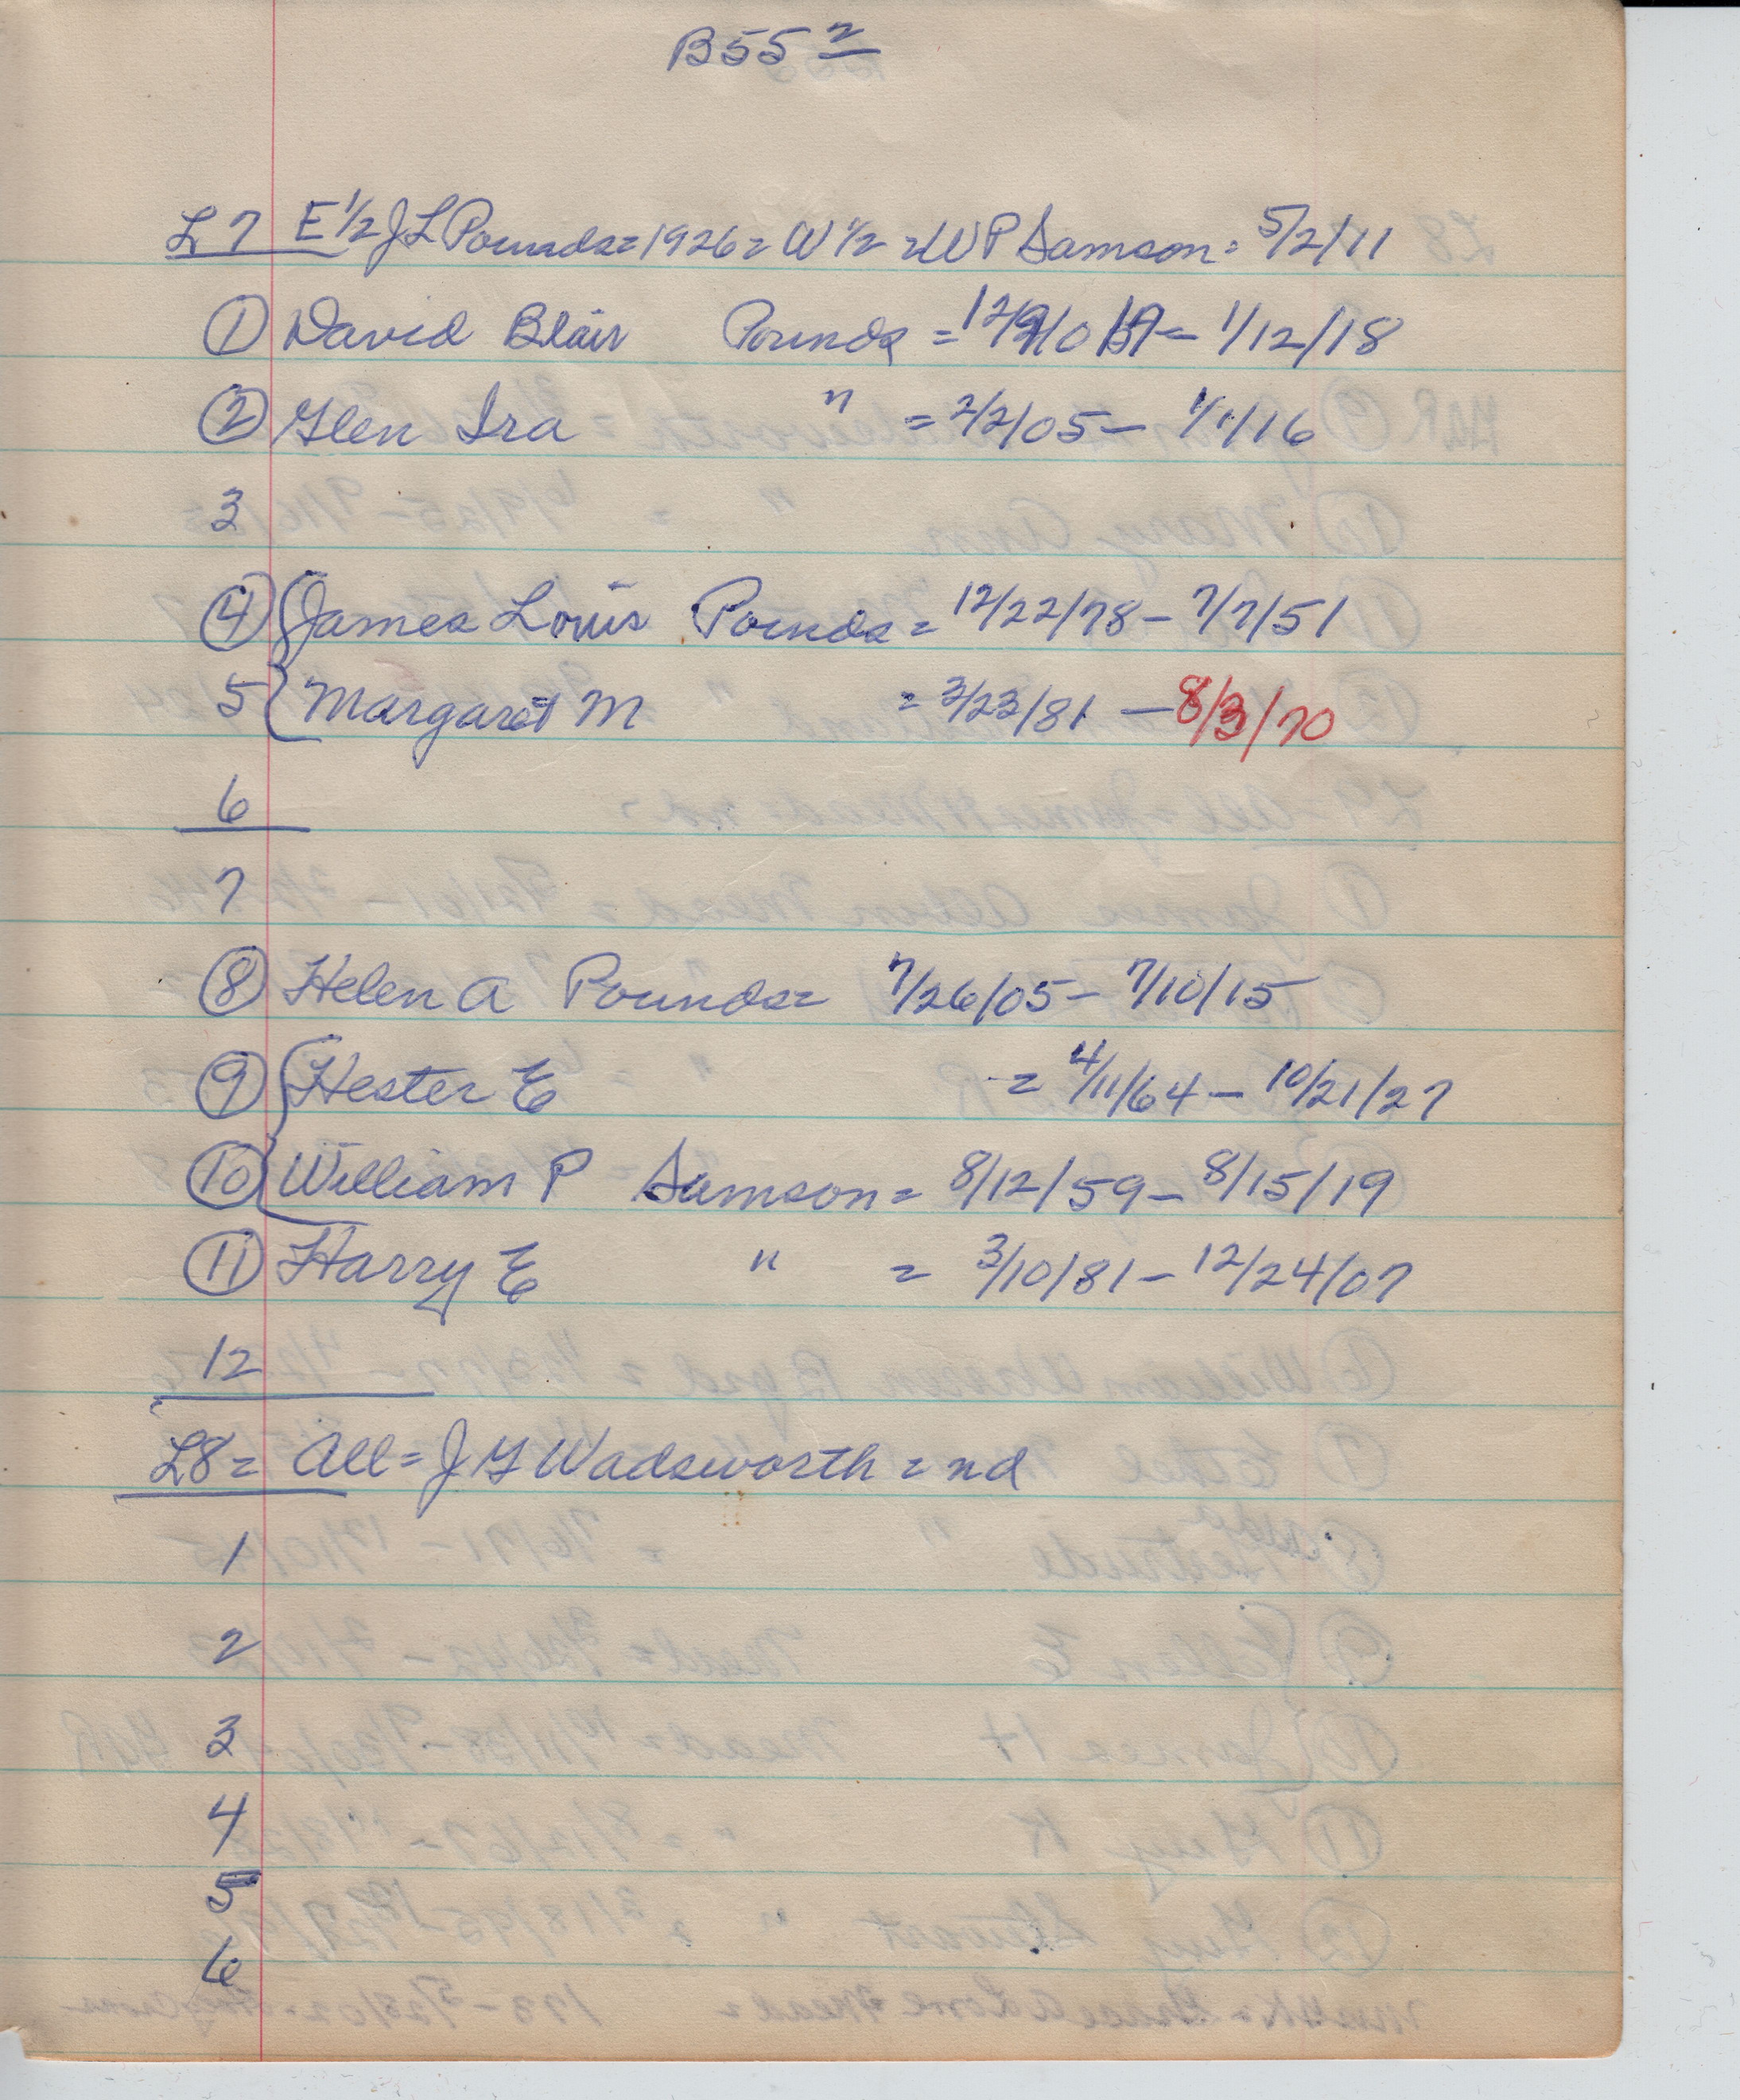 B55 2
L7 E 1/2 J L Pounds = 1926 = W 1/2 = W P Samson = 5/2/11
① David Blair Pounds = 12/ - 1/12/18
② Glen Ira " = 2/2/05 - 1/1/16
3
④ James Louis Pounds = 12/22/78 - 7/7/51
5 Margaret M = 3/23/81 - 8/3/70
6
7
⑧ Helen A Pounds = 7/26/05 - 7/10/15
⑨ Hester E = 4/11/64 - 10/21/27
⑩ William P Samson = 8/12/59 - 8/15/19
⑪ Harry E " = 3/10/81 - 12/24/07
12
L8 = All = J G Wadsworth = nd
1
2
3
4
5
6